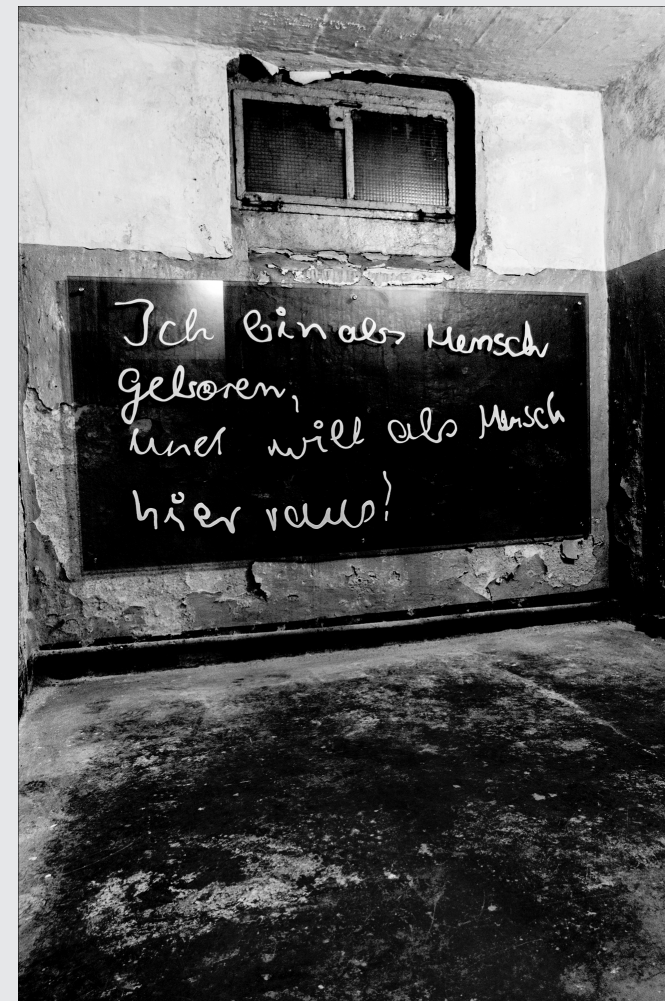 Ich bin als Mensch
geboren,
und will als Mensch
hier raus!